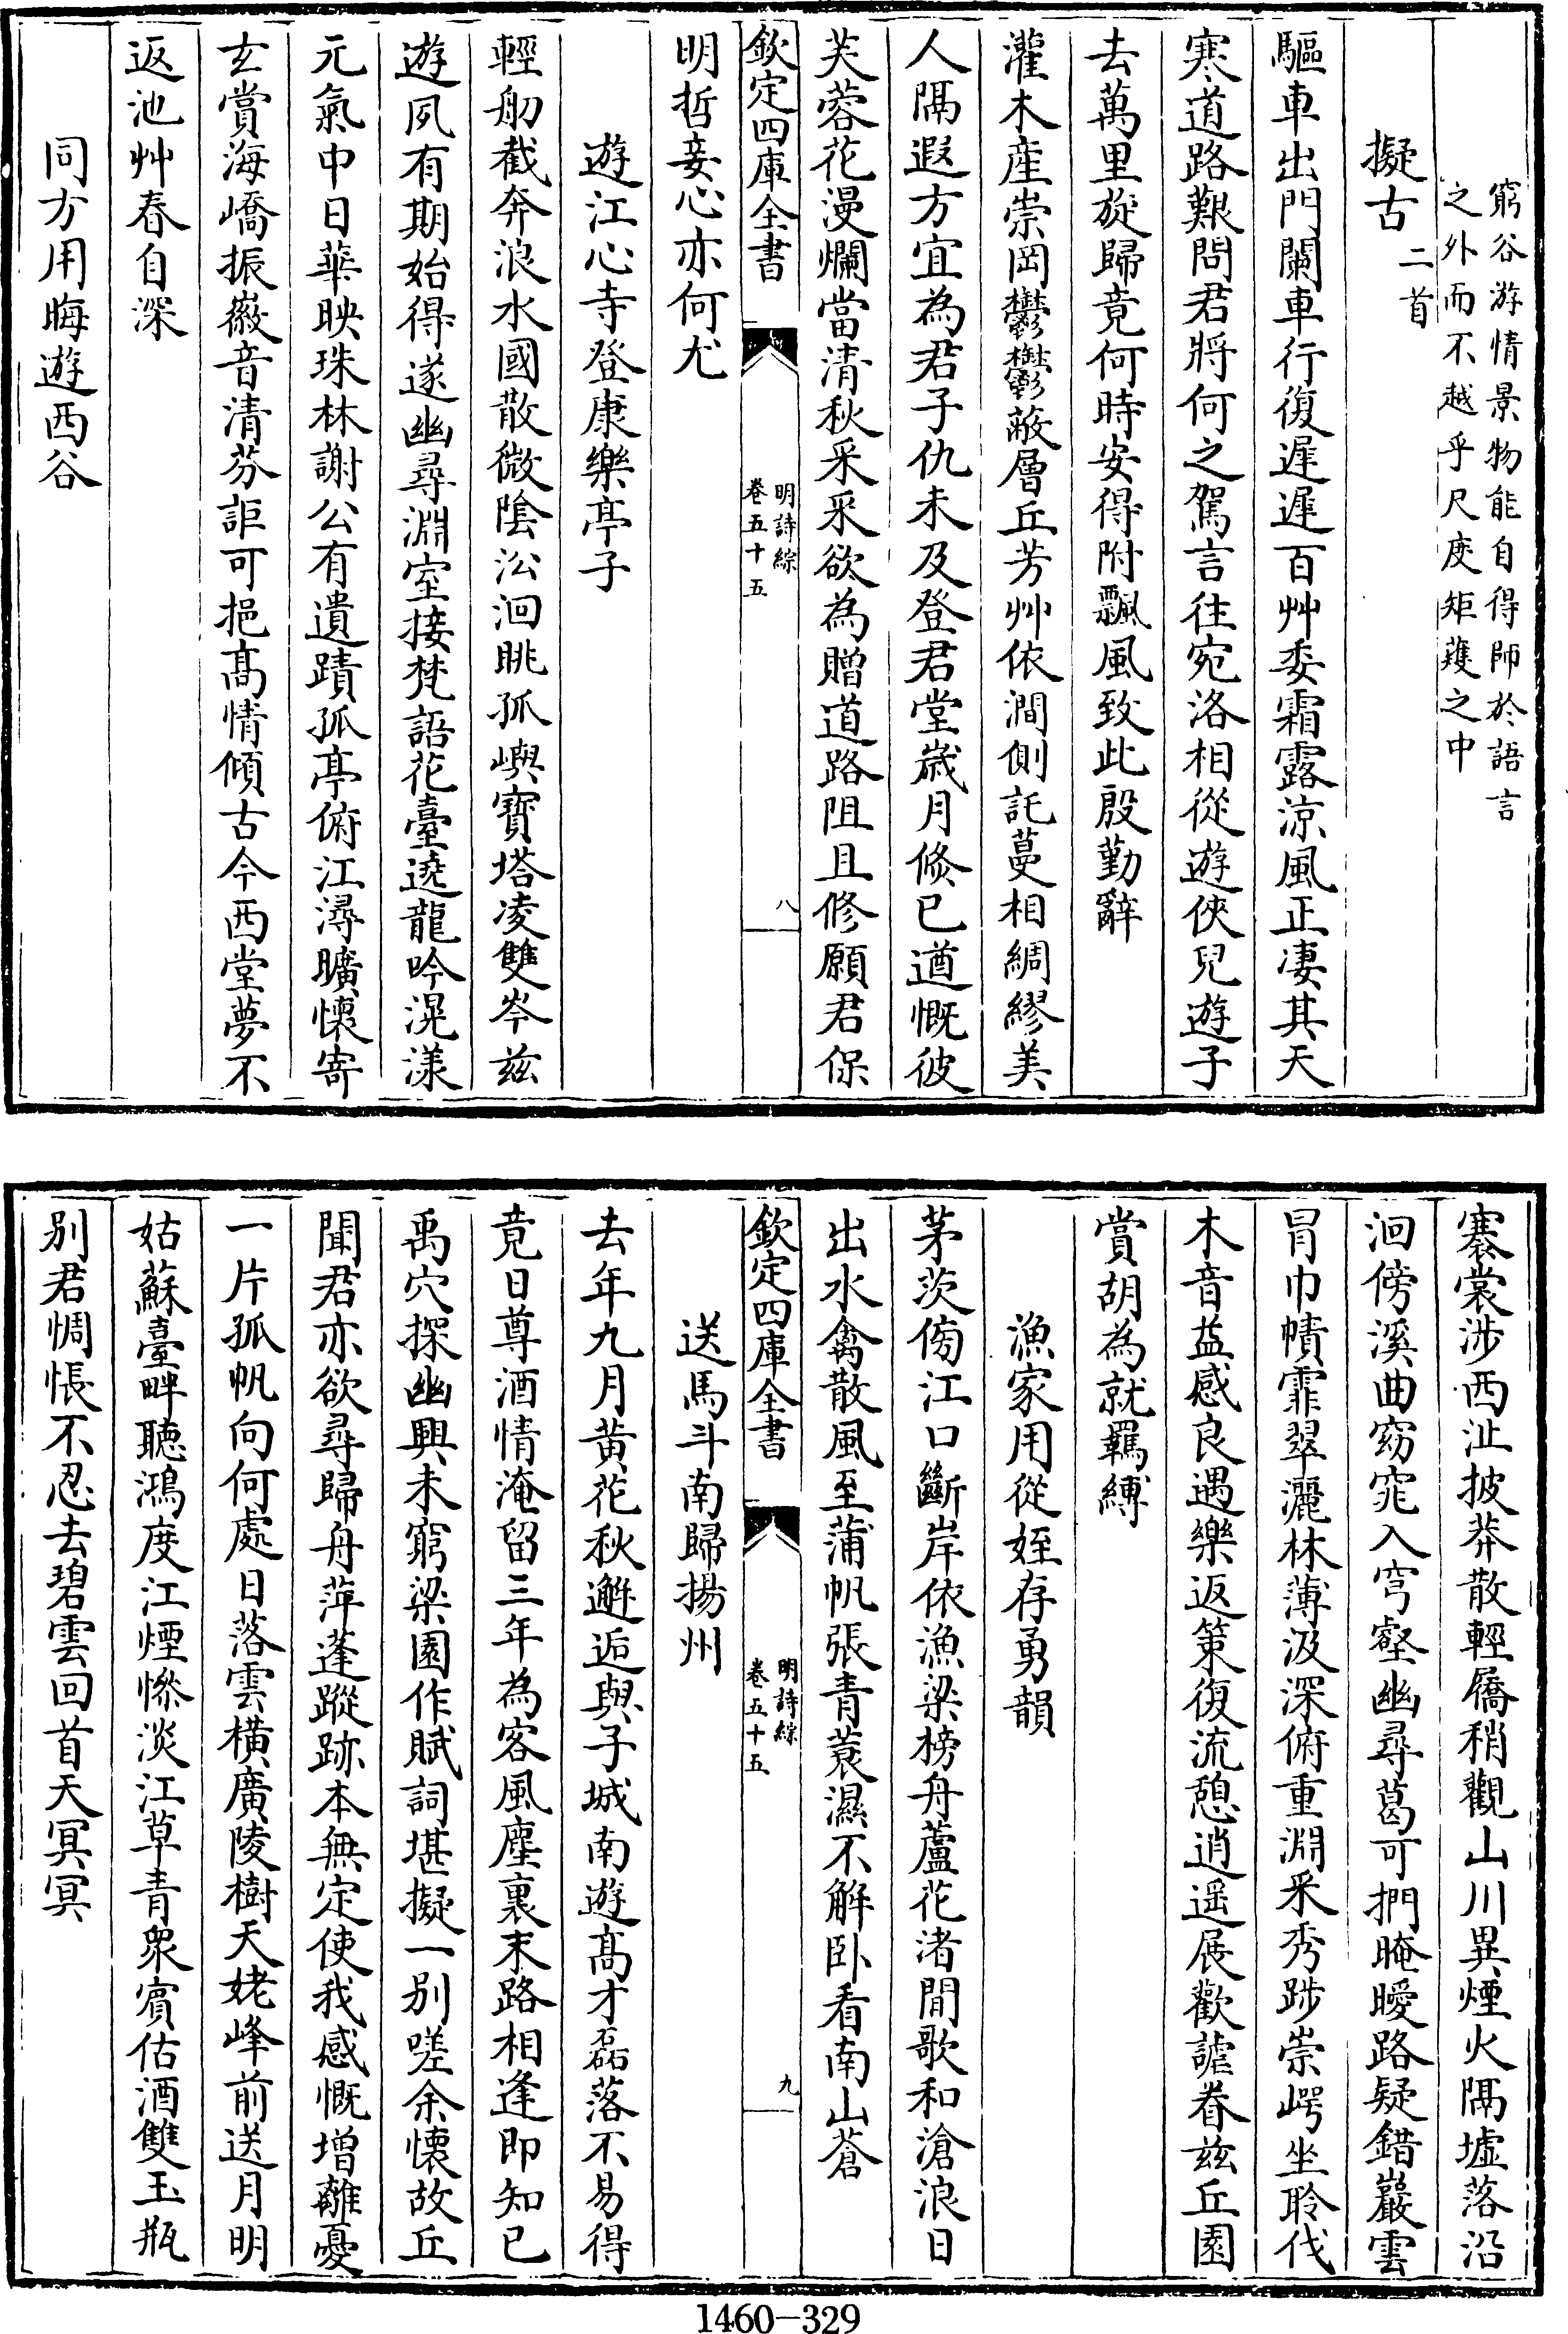 窮谷游情景物能自得師於語言
之外而不越乎尺度矩蒦之中
擬古二首
驅車出門闌車行復遲遲百艸委霜露涼風正淒其天
寒道路艱問君將何之駕言往宛洛相從遊俠兒遊子
去萬里旋歸竟何時安得附飄風致此殷勤辭
灌木產崇岡鬱鬱蔽層丘芳艸依澗側託蔓相綢繆美
人隔遐方宜為君子仇未及登君堂歲月倏已遒慨彼
芙蓉花漫爛當清秋采采欲為贈道路阻且修願君保
欽定四庫全書
明詩綜
卷五十五
八
明哲妾心亦何尤
遊江心寺登康樂亭子
輕舠截奔浪水國散微陰㳂洄眺孤嶼寶塔凌雙岑茲
遊夙有期始得遂幽尋淵室接梵語花臺遶龍吟滉漾
元氣中日華映珠林謝公有遺蹟孤亭俯江潯曠懷寄
玄賞海嶠振徽音清芬詎可挹高情傾古今西堂夢不
返池艸春自深
同方用晦遊西谷
褰裳涉西沚披莽散輕屩稍觀山川異煙火隔墟落沿
洄傍溪曲窈窕入穹壑幽尋葛可捫晻曖路疑錯巖雲
冐巾幘霏翠灑林薄汲深俯重淵采秀陟崇崿坐聆伐
木音益感良遇樂返策復流憩逍遥展歡謔眷茲丘園
賞胡為就羈縛
漁家用從姪存勇韻
茅茨傍江口斷岸依漁梁榜舟蘆花渚閒歌和滄浪日
出水禽散風至蒲帆張青蓑濕不解卧看南山蒼
欽定四庫全書
明詩綜
卷五十五
九
送馬斗南歸揚州
去年九月黃花秋邂逅與子城南遊高才磊落不易得
竟日尊酒情淹留三年為客風塵裏末路相逢即知已
禹穴探幽興未窮梁園作賦詞堪擬一别嗟余懷故丘
聞君亦欲尋歸舟萍蓬蹤跡本無定使我感慨增離憂
一片孤帆向何處日落雲橫廣陵樹天姥峰前送月明
姑蘇臺畔聽鴻度江煙慘淡江草青衆賓估酒雙玉瓶
别君惆悵不忍去碧雲回首天冥冥
1460-329